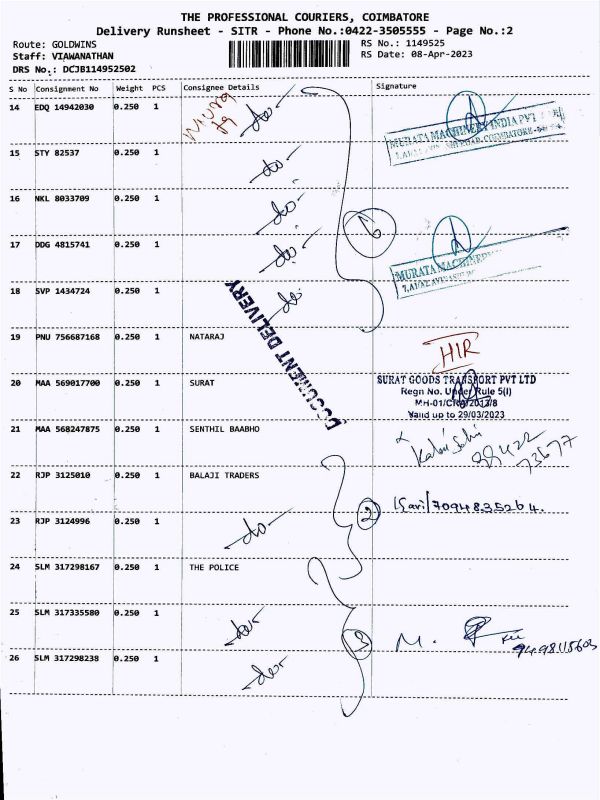 THE PROFESSIONAL COURIERS, COIMBATORE
Delivery Runsheet - SITR - Phone No.:0422-3505555 - Page No.:2
Route: GOLDWINS RS No.: 1149525
Staff: VIAWANATHAN RS Date: 08-Apr-2023
DRS No.: DCJB114952502
S No Consignment No Weight PCS Consignee Details Signature
14 EDQ 14942030 0.250 1 -do-
MURATA MACHINERY INDIA PVT
15 STY 82537 0.250 1 -do-
16 NKL 8033709 0.250 1 -do-
6
17 DDG 4815741 0.250 1 -do-
MURATA MACHINERY
18 SVP 1434724 0.250 1 -do-
DOCUMENT DELIVERY
19 PNU 756687168 0.250 1 NATARAJ HIR
20 MAA 569017700 0.250 1 SURAT SURAT GOODS TRANSPORT PVT LTD
Regn No. Under Rule 5(I)
Valid up to 29/03/2023
21 MAA 568247875 0.250 1 SENTHIL BAABHO
98422
73677
22 RJP 3125010 0.250 1 BALAJI TRADERS
2 7094835264.
23 RJP 3124996 0.250 1 -do-
24 SLM 317298167 0.250 1 THE POLICE
25 SLM 317335580 0.250 1 -do-
3 M.
26 SLM 317298238 0.250 1 -do-